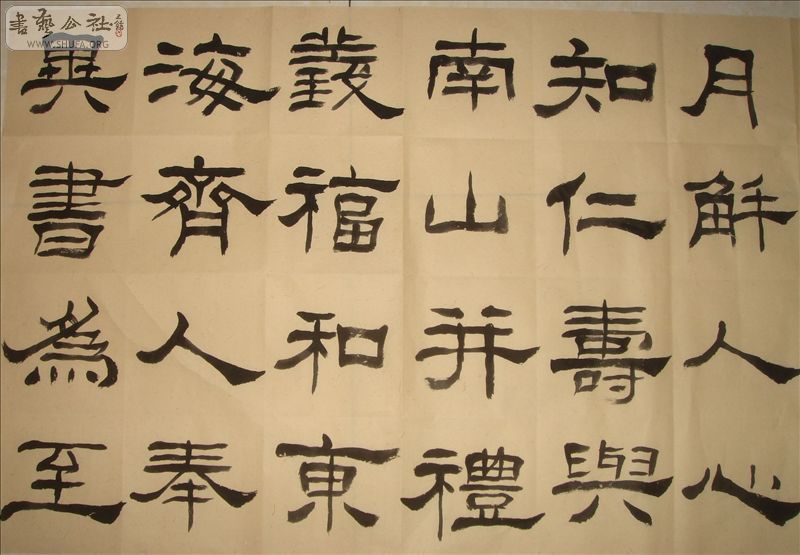 月解人心
知仁壽與
南山并禮
義福和東
海齊人奉
異書為至
書藝公社
WWW.SHUFA.ORG